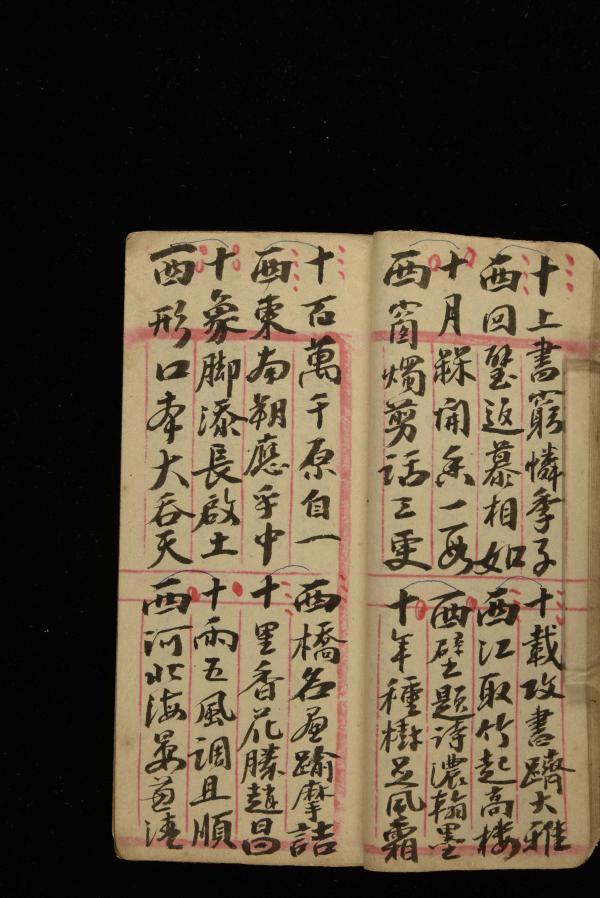 十上書窮憐季子
西回璧返慕相如
十月開香一
西窗燭剪話三更
十載攻書躋大雅
西江取竹起高樓
西壁題詩濃翰墨
十年種樹足風霜
十百萬千原自一
西東南朔應乎中
十象脚添長啟土
西形口夲大吞天
西橋名畫踰摩詰
十里香花勝趙昌
十雨五風調且順
西河北海晏清